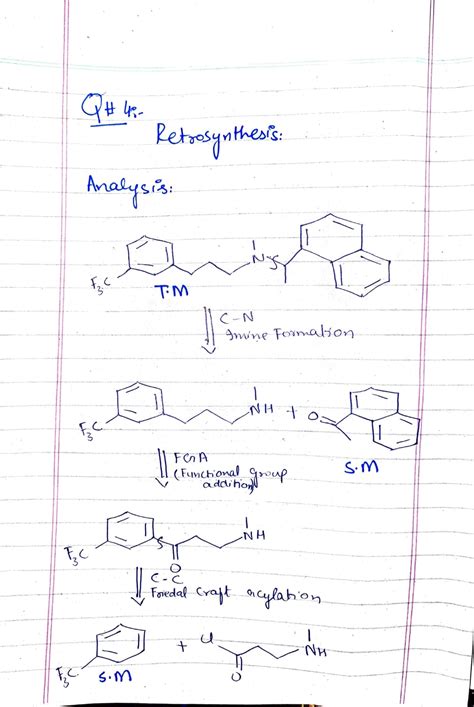 Q# 4:-
Retrosynthesis:
Analysis:
N
F₃C
T.M
C-N
Imine Formation
NH + O
F₃C
S.M
FGA
(Functional Group
addition)
NH
F₃C
O
C-C
Friedal Craft acylation
+ Cl
NH
F₃C
S.M
O